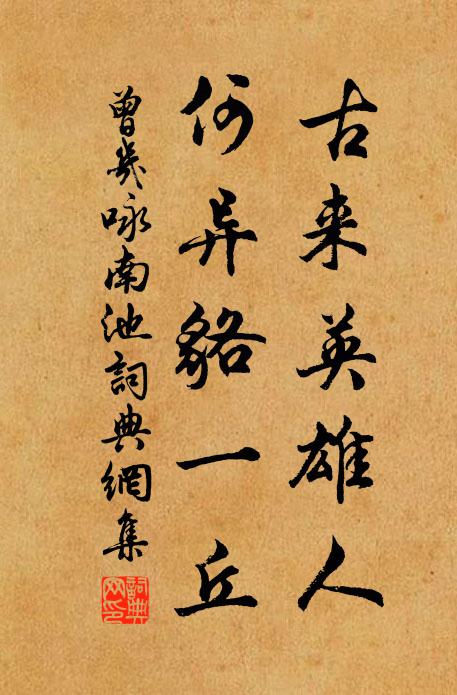 古来英雄人
何异貉一丘
曾幾咏南池詞典網集
詞典網印